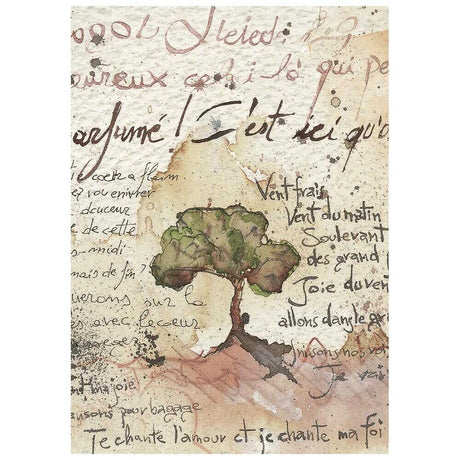 eureux celui-là qui pe
arfumé! C'est ici qu'o
cœur a faim
vous enivrer
douceur
de cette
-midi
mais de fin?
uerons sur la
es avec le cœur
Vent frais
Vent du matin
Soulevant
des grand
Joie du vent
allons dans le gr
unissons nos voi
Je vai
nt ma joie
ansons pour bagage
Je chante l'amour et je chante ma foi